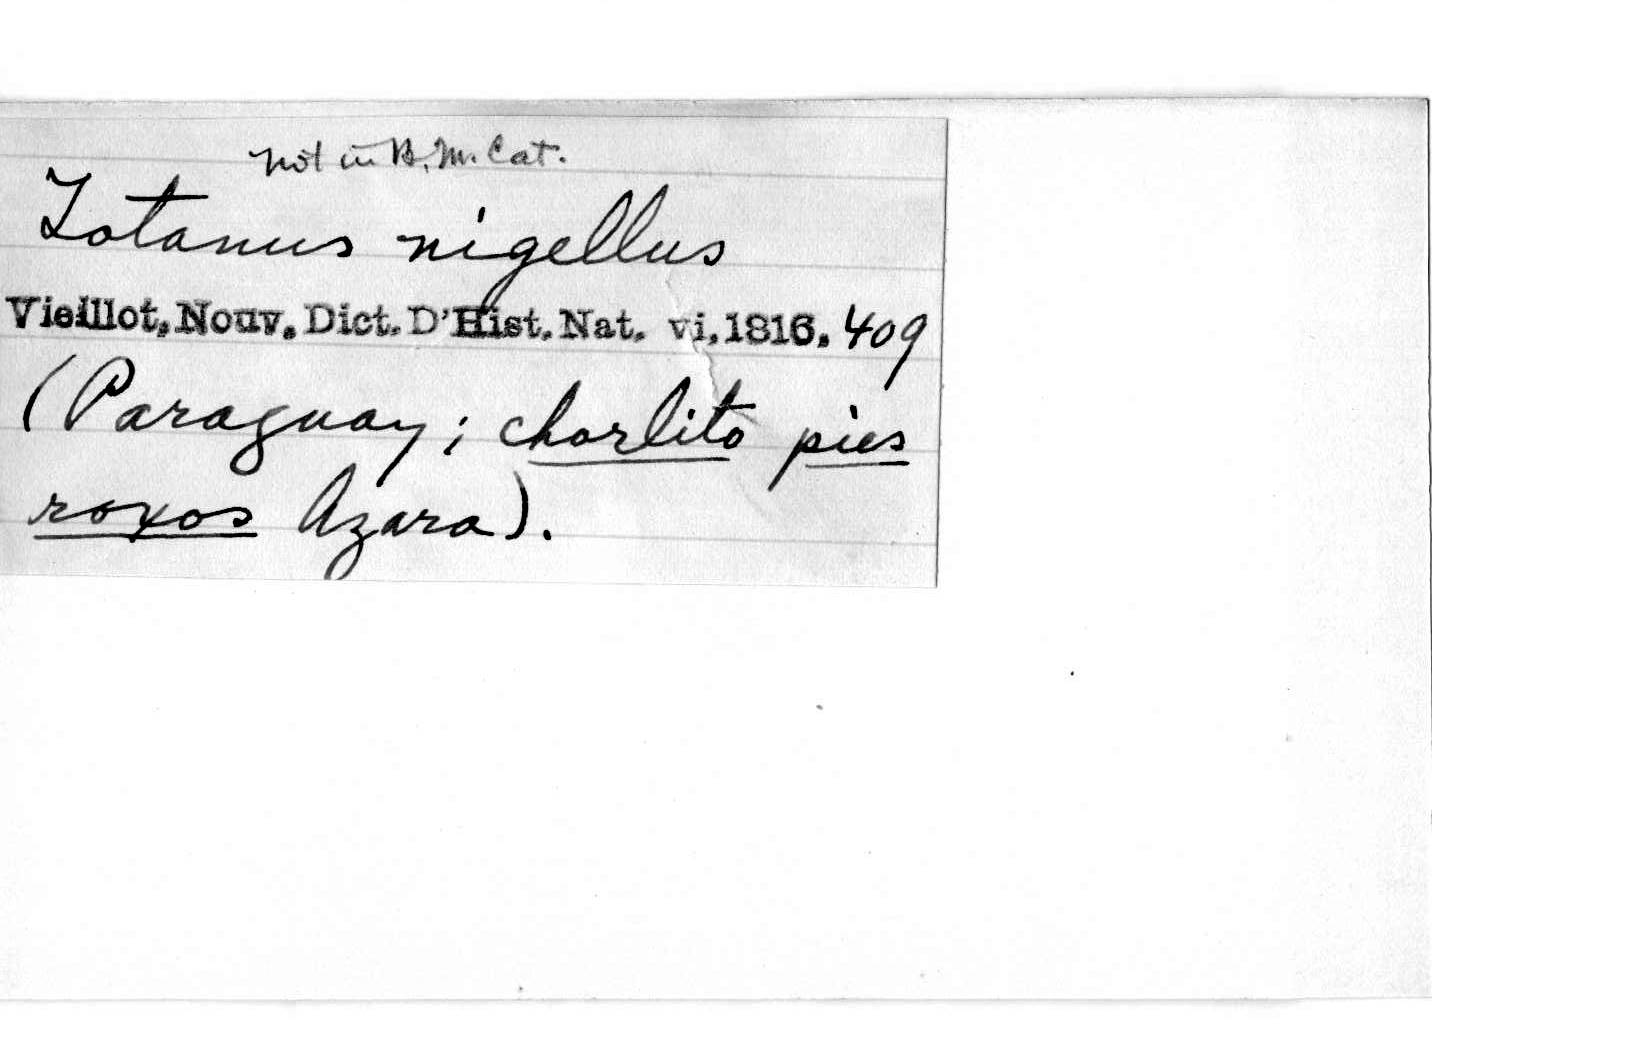 not in B.M. Cat.
Totanus nigellus
Vieillot, Nouv. Dict. D'Hist. Nat. vi, 1816. 409
(Paraguay; chorlito pies
roxos Azara).